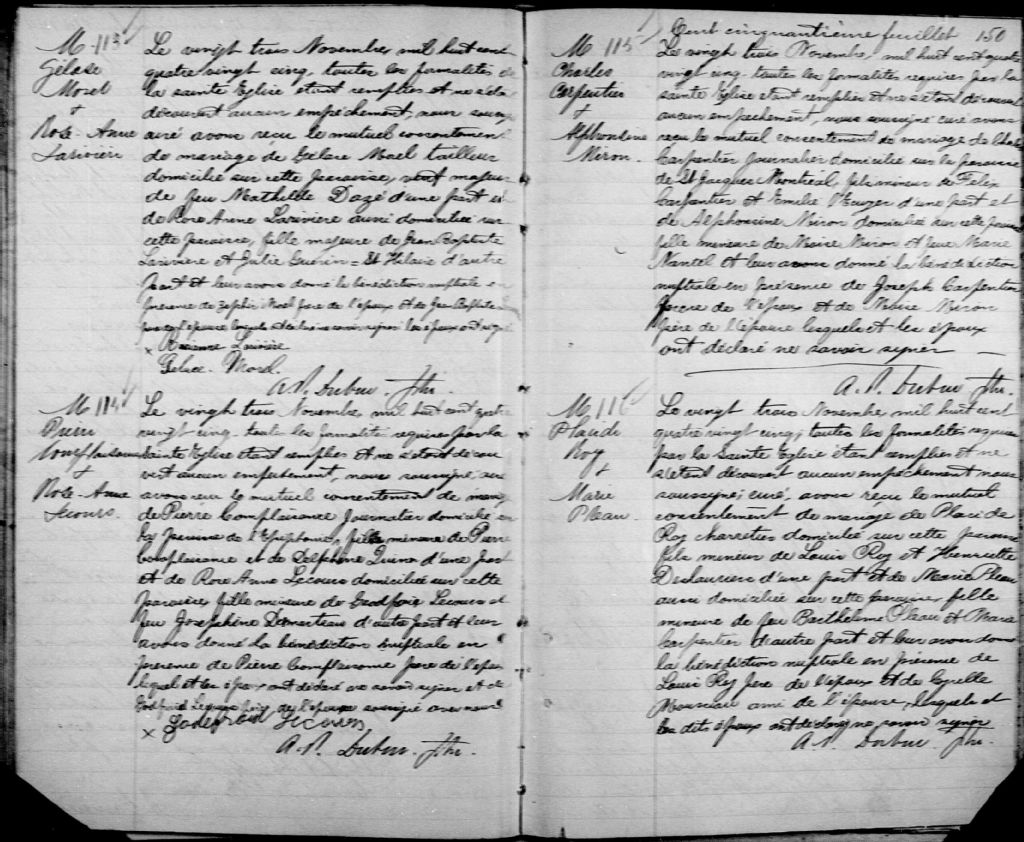 M 113
Gélase
Morel
+
Rose-Anna
Larivière
Le vingt trois Novembre mil huit cent
quatre vingt cinq, toutes les formalités de
la sainte Eglise étant remplies et ne s'étant
découvert aucun empêchement, nous soussigné
curé avons reçu le mutuel consentement
de mariage de Gélase Morel tailleur
domicilié sur cette paroisse, majeur
de feu Mathilde Dagé d'une part et
de Rose Anne Larivière aussi domiciliée sur
cette paroisse, fille majeure de Jean Baptiste
Larivière et Julie Guérin = St Hilaire d'autre
part et leur avons donné la bénédiction nuptiale en
présence de Morel père de l'époux et de Jean Baptiste
père de l'épouse lesquels
x Larivière
Gelase Morel
A. P. Dubuc. Ptre.
M 114
Pierre
Complaisance
+
Rose-Anna
Lecours.
Le vingt trois Novembre mil huit cent quatre
vingt cinq toutes les formalités requises par la
Sainte Eglise étant remplies et ne s'étant décou
vert aucun empêchement, nous soussigné, curé
avons reçu le mutuel consentement de mariage
de Pierre Complaisance Journalier domicilié en
la paroisse de l'Epiphanie, fils mineur de Pierre
Complaisance et de Delphine d'une part
et de Rose Anne Lecours domiciliée sur cette
paroisse, fille mineure de Godfroie Lecours et
feu Joséphine Demarteau d'autre part et leur
avons donné la bénédiction nuptiale en
présence de Pierre Complaisance père de l'époux
lequel et les époux ont déclaré ne savoir signer et de
Godfroid Lecours père de l'épouse soussigné avec nous
x Lecours
A. P. Dubuc. Ptre.
Cent cinquantième feuillet 150
M 115
Charles
Carpentier
+
Alphonsine
Miron.
Le vingt trois Novembre, mil huit cent quatre
vingt cinq, toutes les formalités requises par la
sainte Eglise étant remplies et ne s'étant découvert
aucun empêchement, nous soussigné curé avons
reçu le mutuel consentement de mariage de Charles
Carpentier Journalier domicilié sur la paroisse
de St Jacques Montréal, fils mineur de Felix
Carpentier et Emilie d'une part et
de Alphonsine Miron domiciliée sur cette paroisse
fille mineure de Moise Miron et feue Marie
Nantel et leur avons donné la bénédiction
nuptiale en présence de Joseph Carpentier
frère de l'époux et de Moise Miron
père de l'épouse lesquels et les époux
ont déclaré ne savoir signer
A. P. Dubuc Ptre.
M 116
Placide
Roy
+
Marie
Pleau.
Le vingt trois Novembre mil huit cent
quatre vingt cinq, toutes les formalités requises
par la Sainte Eglise étant remplies et ne
s'étant découvert aucun empêchement nous
soussigné, curé, avons reçu le mutuel
consentement de mariage de Placide
Roy charretier domicilié sur cette paroisse
fils mineur de Louis Roy et Henriette
Deslauriers d'une part et de Marie Pleau
aussi domiciliée sur cette paroisse, fille
mineure de feu Barthelme Pleau et Marie
Carpentier d'autre part et leur avons donné
la bénédiction nuptiale en présence de
Louis Roy père de l'époux et de Cyrille
ami de l'épouse, lesquels et
les dits époux ont déclaré ne savoir signer
A. P. Dubuc. Ptre.